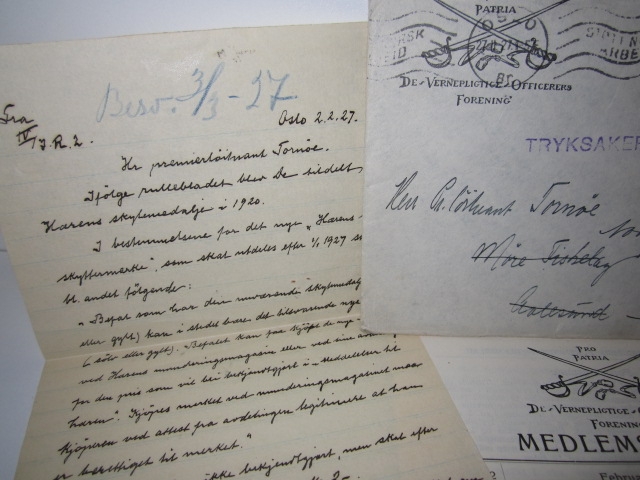 Fra
IV/J.R.2.
Besv. 3/3-27.
Oslo 2.2.27.
Hr premierløitnant Tornøe.
Ifølge rullebladet blev De tildelt
Hærens skytemedalje i 1920.
I bestemmelsene for det nye "Hærens
skyttermerke", som skal utdeles efter 1/1 1927 
bl. andet følgende:
"Befal som har den nuværende skytemedalje
eller gylt) kan i stedet bære det tilsvarende nye
(sølv eller gylt). Befalet kan faa kjøpt de nye
ved Hærens munderingsmagasin eller ved
for den pris som vil bli bekjendtgjort i "Meddelelser til
hæren". Kjøpes merket ved munderingsmagasinet maa
kjøperen ved attest fra avdelingen legitimere at han
er berettiget til merket."
ikke bekjendtgjort, men skal efter
PATRIA
OSLO
De Vernepligtige Officerers
Forening
TRYKSAKER
Herr Pr. Löitnant Tornöe
Möre Fiskeley
Aalesund
PRO
PATRIA
De Vernepligtige
Forening
MEDLEMS
Februar